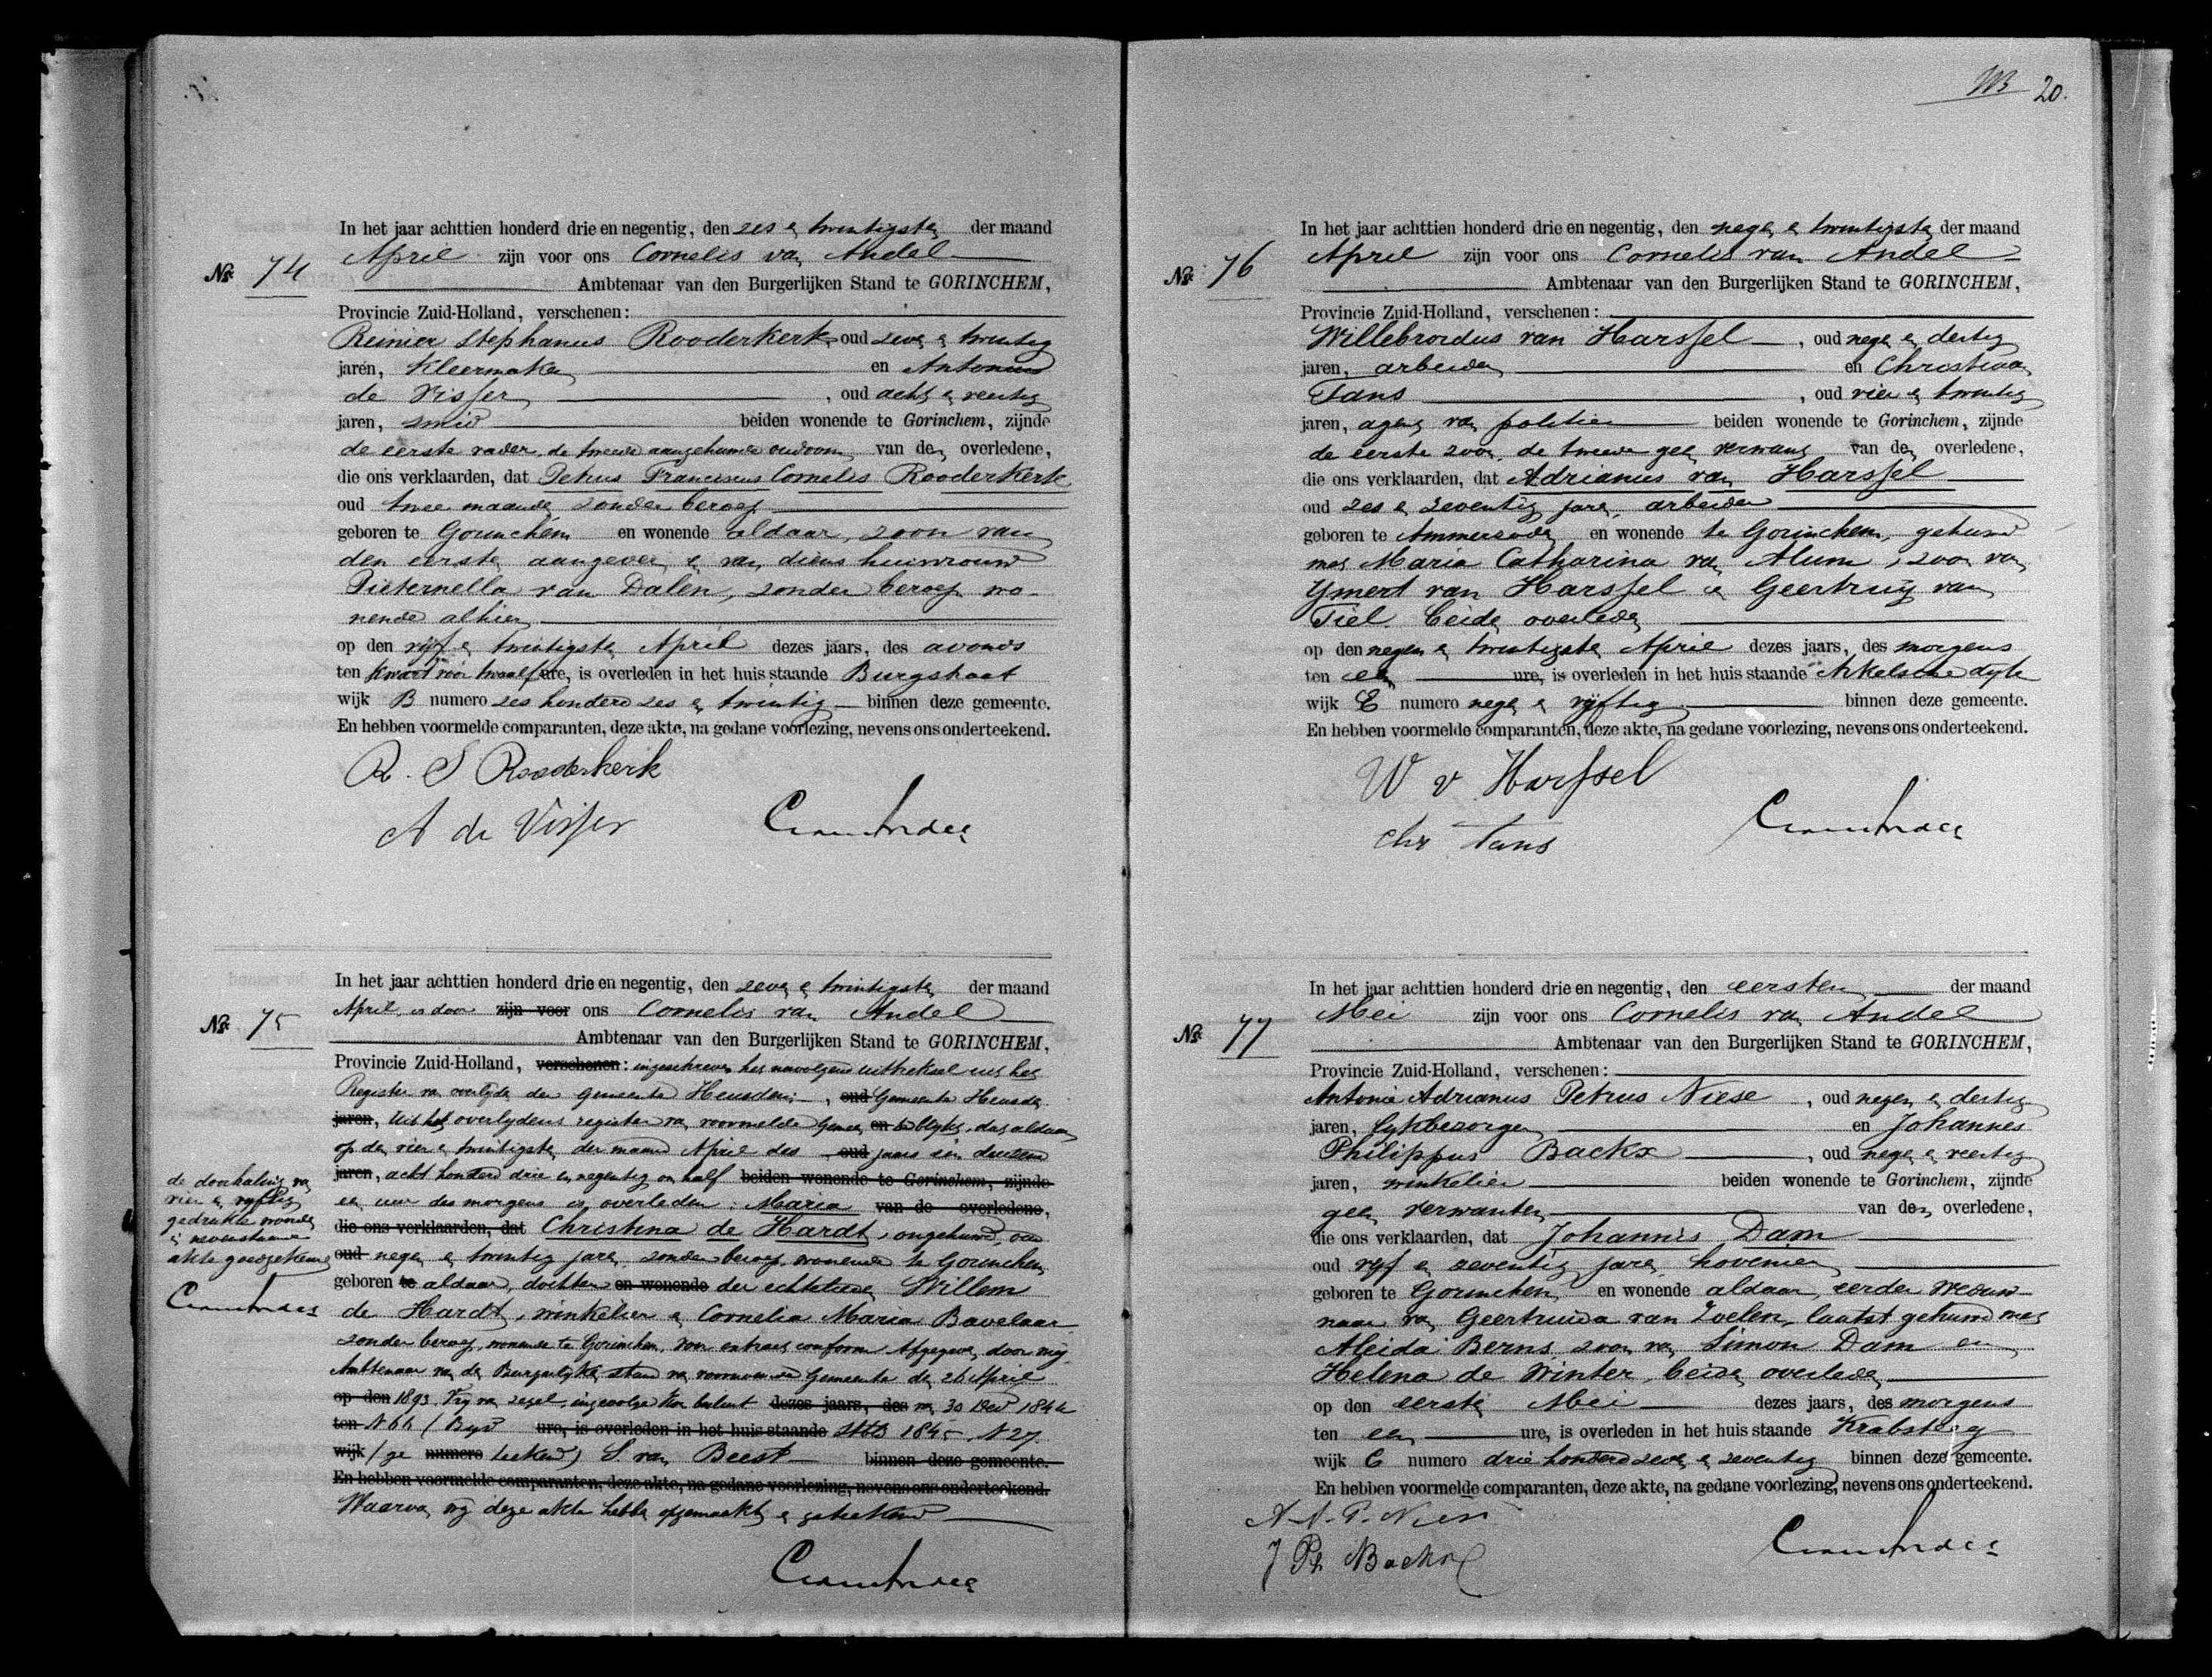 No. 74
In het jaar achttien honderd drie en negentig, den zes en twintigsten der maand
April zijn voor ons Cornelis van Andel
Ambtenaar van den Burgerlijken Stand te GORINCHEM,
Provincie Zuid-Holland, verschenen:
Reinier Stephanus Rooderkerk, oud zeven en twintig
jaren, Kleermaker en Antonius
de Visser, oud acht en veertig
jaren, smid beiden wonende te Gorinchem, zijnde
de eerste vader, de tweede aangehuwde oudoom van den overledene,
die ons verklaarden, dat Petrus Franciscus Cornelis Rooderkerk
oud twee maanden zonder beroep
geboren te Gorinchem en wonende aldaar, zoon van
den eersten aangever en van diens huisvrouw
Pieternella van Dalen, zonder beroep wo-
nende alhier
op den vijf en twintigsten April dezes jaars, des avonds
ten kwart voor twaalf ure, is overleden in het huis staande Burgstraat
wijk B numero zes honderd zes en twintig binnen deze gemeente.
En hebben voormelde comparanten, deze akte, na gedane voorlezing, nevens ons onderteekend.
R. S Rooderkerk
A de Visser
C van Andel
No. 75
In het jaar achttien honderd drie en negentig, den zeven en twintigsten der maand
April is door zijn voor ons Cornelis van Andel
Ambtenaar van den Burgerlijken Stand te GORINCHEM,
Provincie Zuid-Holland, verschenen: ingeschreven het navolgend uittreksel uit het
Register van overlijden der Gemeente Heusden, oud Gemeente Heusden
jaren, Uit het overlijdens register van voormelde Gemeente en te blijkt, dat aldaar
op den vier en twintigsten der maand April des oud jaars een duizend
jaren, acht honderd drie en negentig om half beiden wonende te Gorinchem, zijnde
een uur des morgens is overleden: Maria van de overledene,
die ons verklaarden, dat Christina de Hardt, ongehuwd, oud
oud negen en twintig jaren, zonder beroep, wonende te Gorinchem
geboren te aldaar, dochter en wonende der echtelieden Willem
de Hardt, winkelier en Cornelia Maria Bavelaar
zonder beroep, wonende te Gorinchem, Voor extract conform Afgegeven door mij
Ambtenaar van den Burgerlijken stand van voornoemde Gemeente den 26 April
op den 1893. Vrij van zegel, ingevolge Kon besluit dezes jaars, des van 30 Dec 1844
ten N 66 (Bijv ure, is overleden in het huis staande Stbl 1845 N 27.
wijk (ge numero teekend) S. van Beest binnen deze gemeente.
En hebben voormelde comparanten, deze akte, na gedane voorlezing, nevens ons onderteekend.
Waarvan wij deze akte hebben opgemaakt en geteekend
C van Andel
de doorhaling van
vier en vijftig
gedrukte woorden
in nevenstaande
akte goedgekeurd
C van Andel
W3 20.
No. 76
In het jaar achttien honderd drie en negentig, den negen en twintigsten der maand
April zijn voor ons Cornelis van Andel
Ambtenaar van den Burgerlijken Stand te GORINCHEM,
Provincie Zuid-Holland, verschenen:
Willebrordus van Harssel, oud negen en dertig
jaren, arbeider en Christiaan
Tans, oud vier en twintig
jaren, agent van politie beiden wonende te Gorinchem, zijnde
de eerste zoon, de tweede geen verwant van den overledene,
die ons verklaarden, dat Adrianus van Harssel
oud zes en zeventig jaren, arbeider
geboren te Ammersoden en wonende te Gorinchem, gehuwd
met Maria Catharina van Alum, zoon van
Ymert van Harssel en Geertruij van
Tiel. beide overleden
op den negen en twintigsten April dezes jaars, des morgens
ten een ure, is overleden in het huis staande Arkelsche dijk
wijk E numero negen en vijftig binnen deze gemeente.
En hebben voormelde comparanten, deze akte, na gedane voorlezing, nevens ons onderteekend.
W v Harssel
Chr Tans
C van Andel
No. 77
In het jaar achttien honderd drie en negentig, den eersten der maand
Mei zijn voor ons Cornelis van Andel
Ambtenaar van den Burgerlijken Stand te GORINCHEM,
Provincie Zuid-Holland, verschenen:
Antonie Adrianus Petrus Niese, oud negen en dertig
jaren, lijkbezorger en Johannes
Philippus Backx, oud negen en veertig
jaren, winkelier beiden wonende te Gorinchem, zijnde
geen verwanten van den overledene,
die ons verklaarden, dat Johannis Dam
oud vijf en zeventig jaren, hovenier
geboren te Gorinchem en wonende aldaar, eerder weduw-
naar van Geertruida van Zoelen, laatst gehuwd met
Aleida Berns zoon van Simon Dam en
Helena de Winter, beide overleden
op den eersten Mei dezes jaars, des morgens
ten een ure, is overleden in het huis staande Krabsteeg
wijk C numero drie honderd zeven en zeventig binnen deze gemeente.
En hebben voormelde comparanten, deze akte, na gedane voorlezing, nevens ons onderteekend.
A. A. P. Niese
J Ph Backx
C van Andel